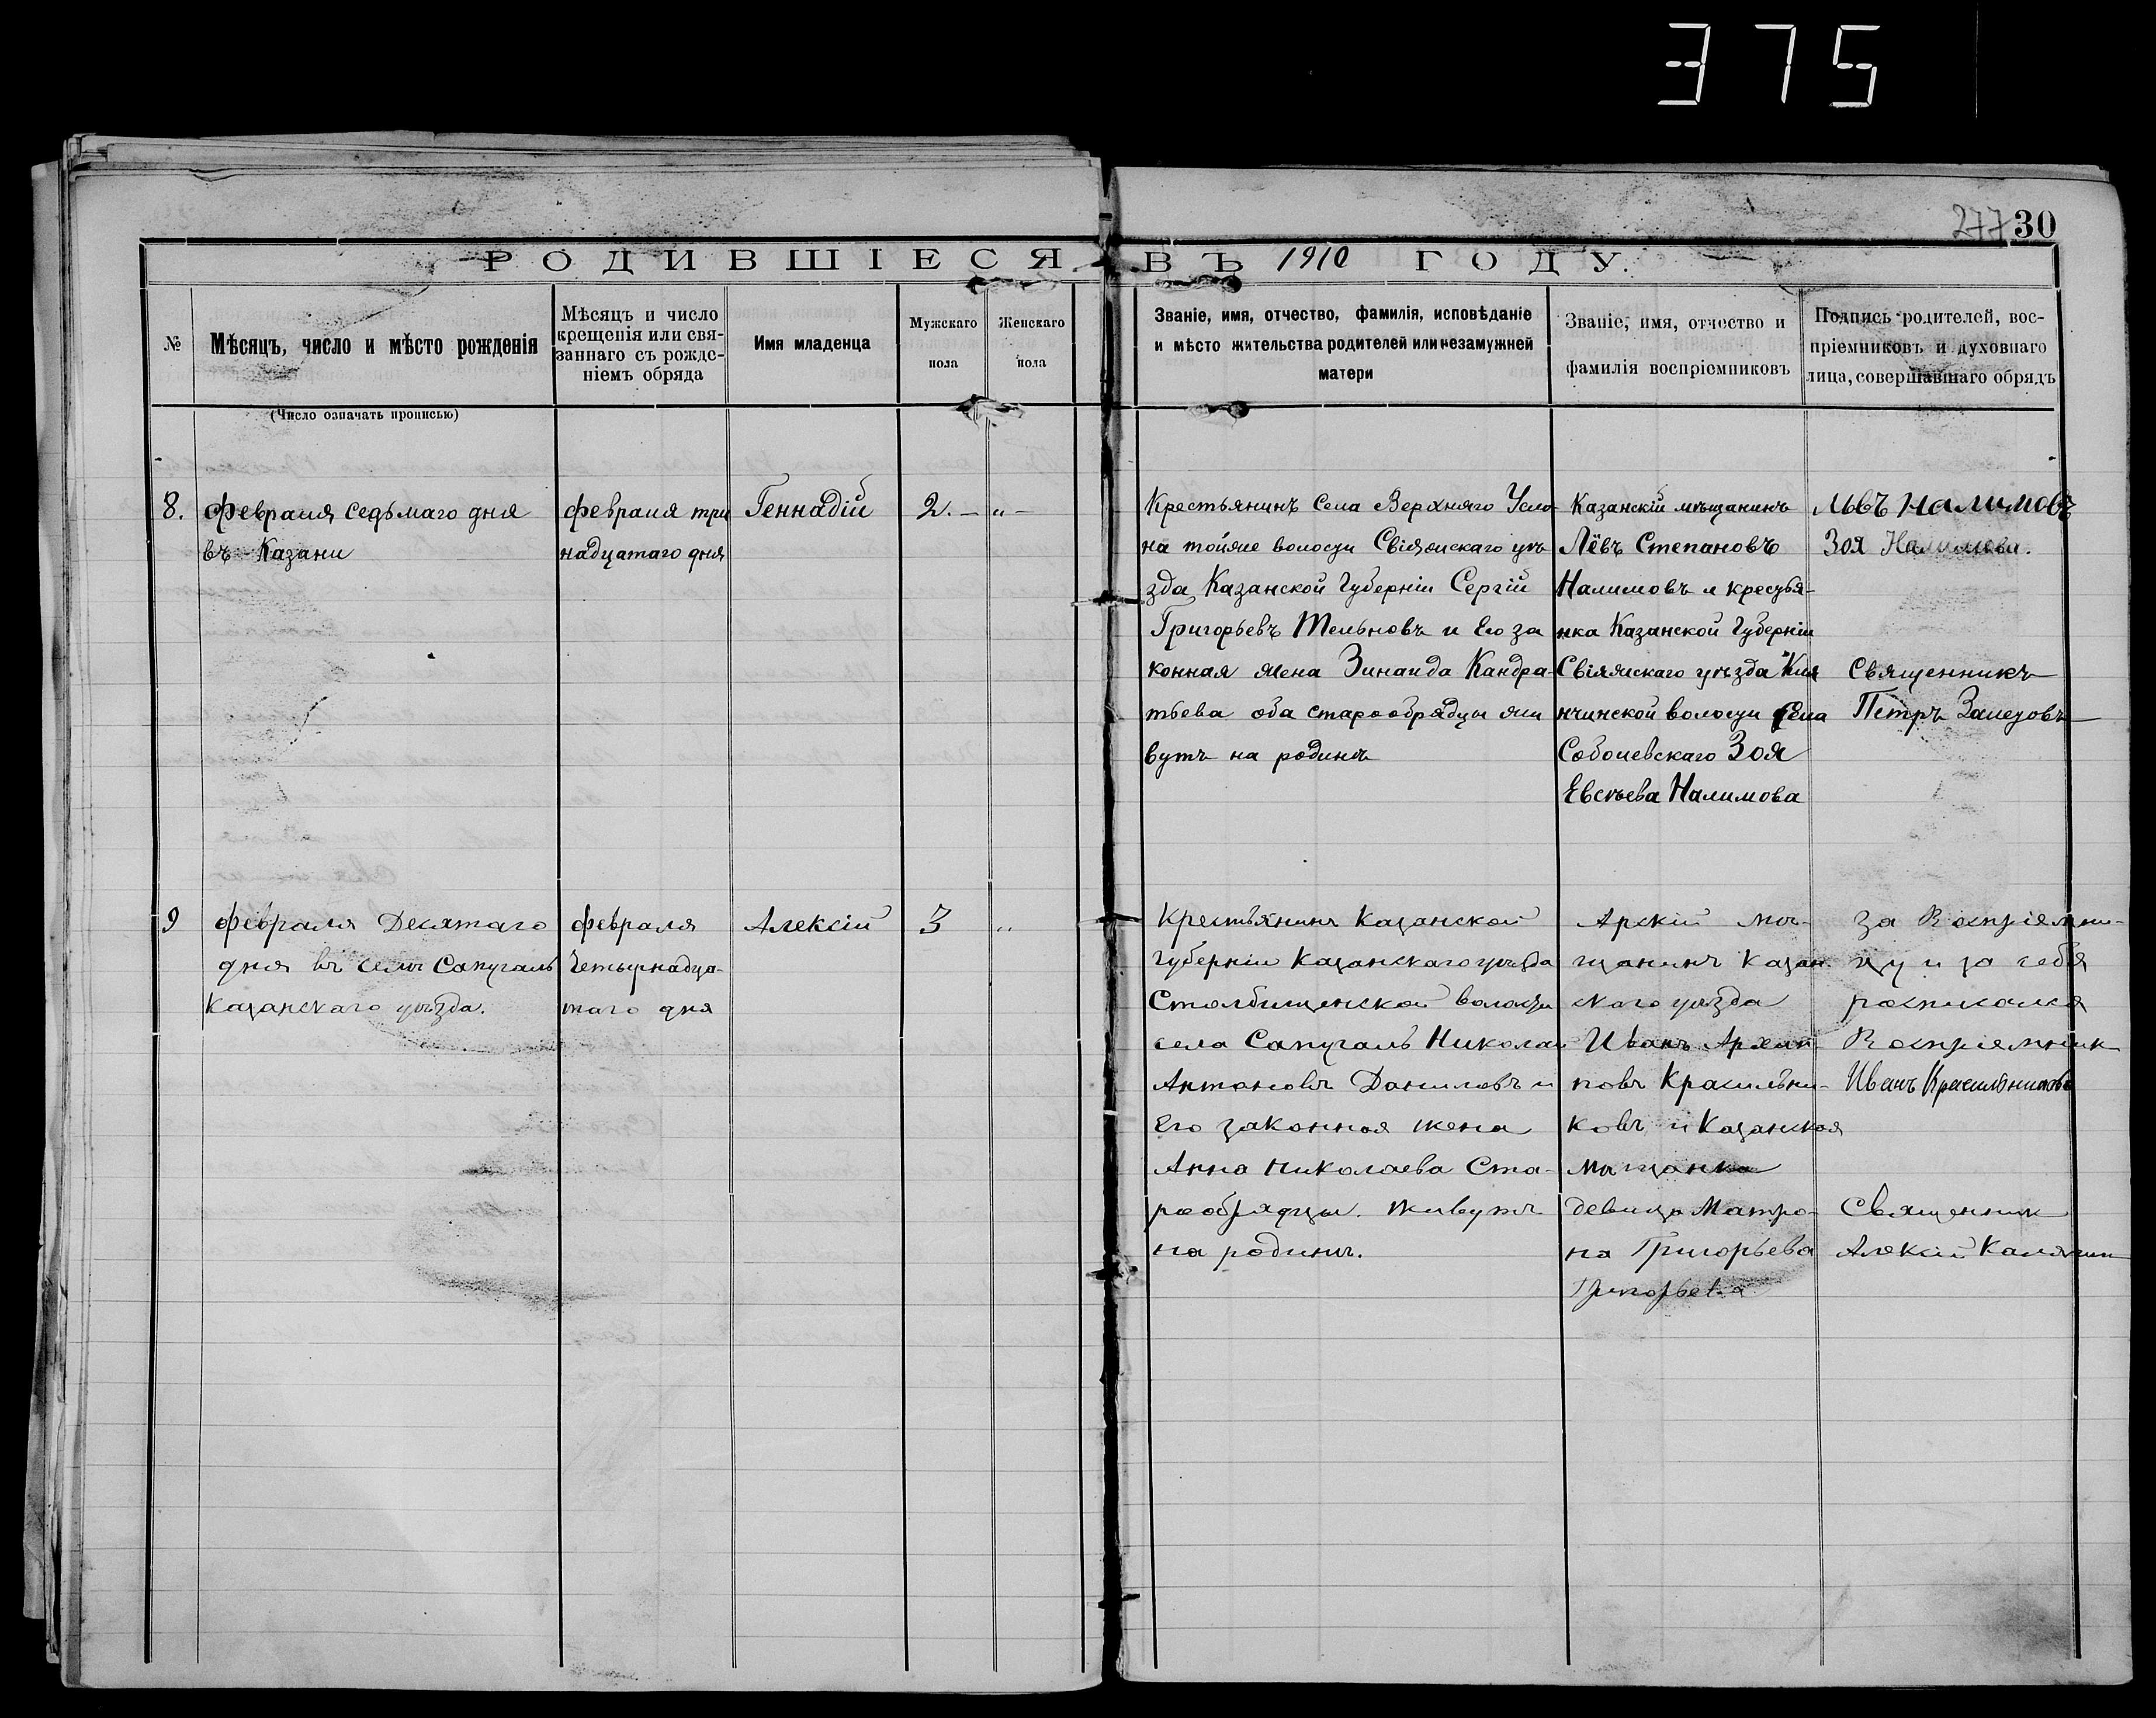 375
277 30
РОДИВШІЕСЯ ВЪ 1910 ГОДУ.
№
Мѣсяцъ, число и мѣсто рожденія
(Число означать прописью)
Мѣсяцъ и число
крещенія или свя-
заннаго съ рожде-
ніемъ обряда
Имя младенца
Мужскаго
пола
Женскаго
пола
Званіе, имя, отчество, фамилія, исповѣданіе
и мѣсто жительства родителей или незамужней
матери
Званіе, имя, отчество и
фамилія воспріемниковъ
Подпись родителей, вос-
пріемниковъ и духовнаго
лица, совершавшаго обрядъ
8.
февраля седьмаго дня
въ Казани
февраля три
надцатаго дня
Геннадій
2. - „ -
Крестьянинъ села Верхняго Усло-
на тойже волости Свіяжскаго уѣ-
зда Казанской Губерніи Сергій
Григорьевъ Тельновъ и Его за
конная жена Зинаида Кандра-
тьева оба старообрядцы жи
вутъ на родинѣ
Казанскій мѣщанинъ
Лёвъ Степановъ
Налимовъ и крестья-
нка Казанской Губерніи
Свіяжскаго уѣзда Кля
нчинской волости села
Соболевскаго Зоя
Евсѣева Налимова
Львъ Налимовъ
Зоя Налимова.
Священникъ
Петръ Залетовъ
9
февраля Десятаго
дня въ селѣ Сапугаль
Казанскаго уѣзда.
февраля
Четырнадца-
таго дня
Алексій
3 „
Крестьянинъ Казанской
Губерніи Казанскаго уѣзда
Столбищенской волости
села Сапугаль Николай
Антоновъ Даниловъ и
Его законная жена
Анна Николаева Ста-
рообрядцы. Живутъ
на родинѣ.
Арскій мѣ-
щанинъ Казан
скаго уѣзда
Иванъ Архип-
повъ Красильни-
ковъ и Казанская
мѣщанка
девица Матро-
на Григорьева
Григорьева
за Воспріемни-
цу и за себя
росписался
Воспріемник
Иванъ Красильниковъ
Священник
Алексій Калягин